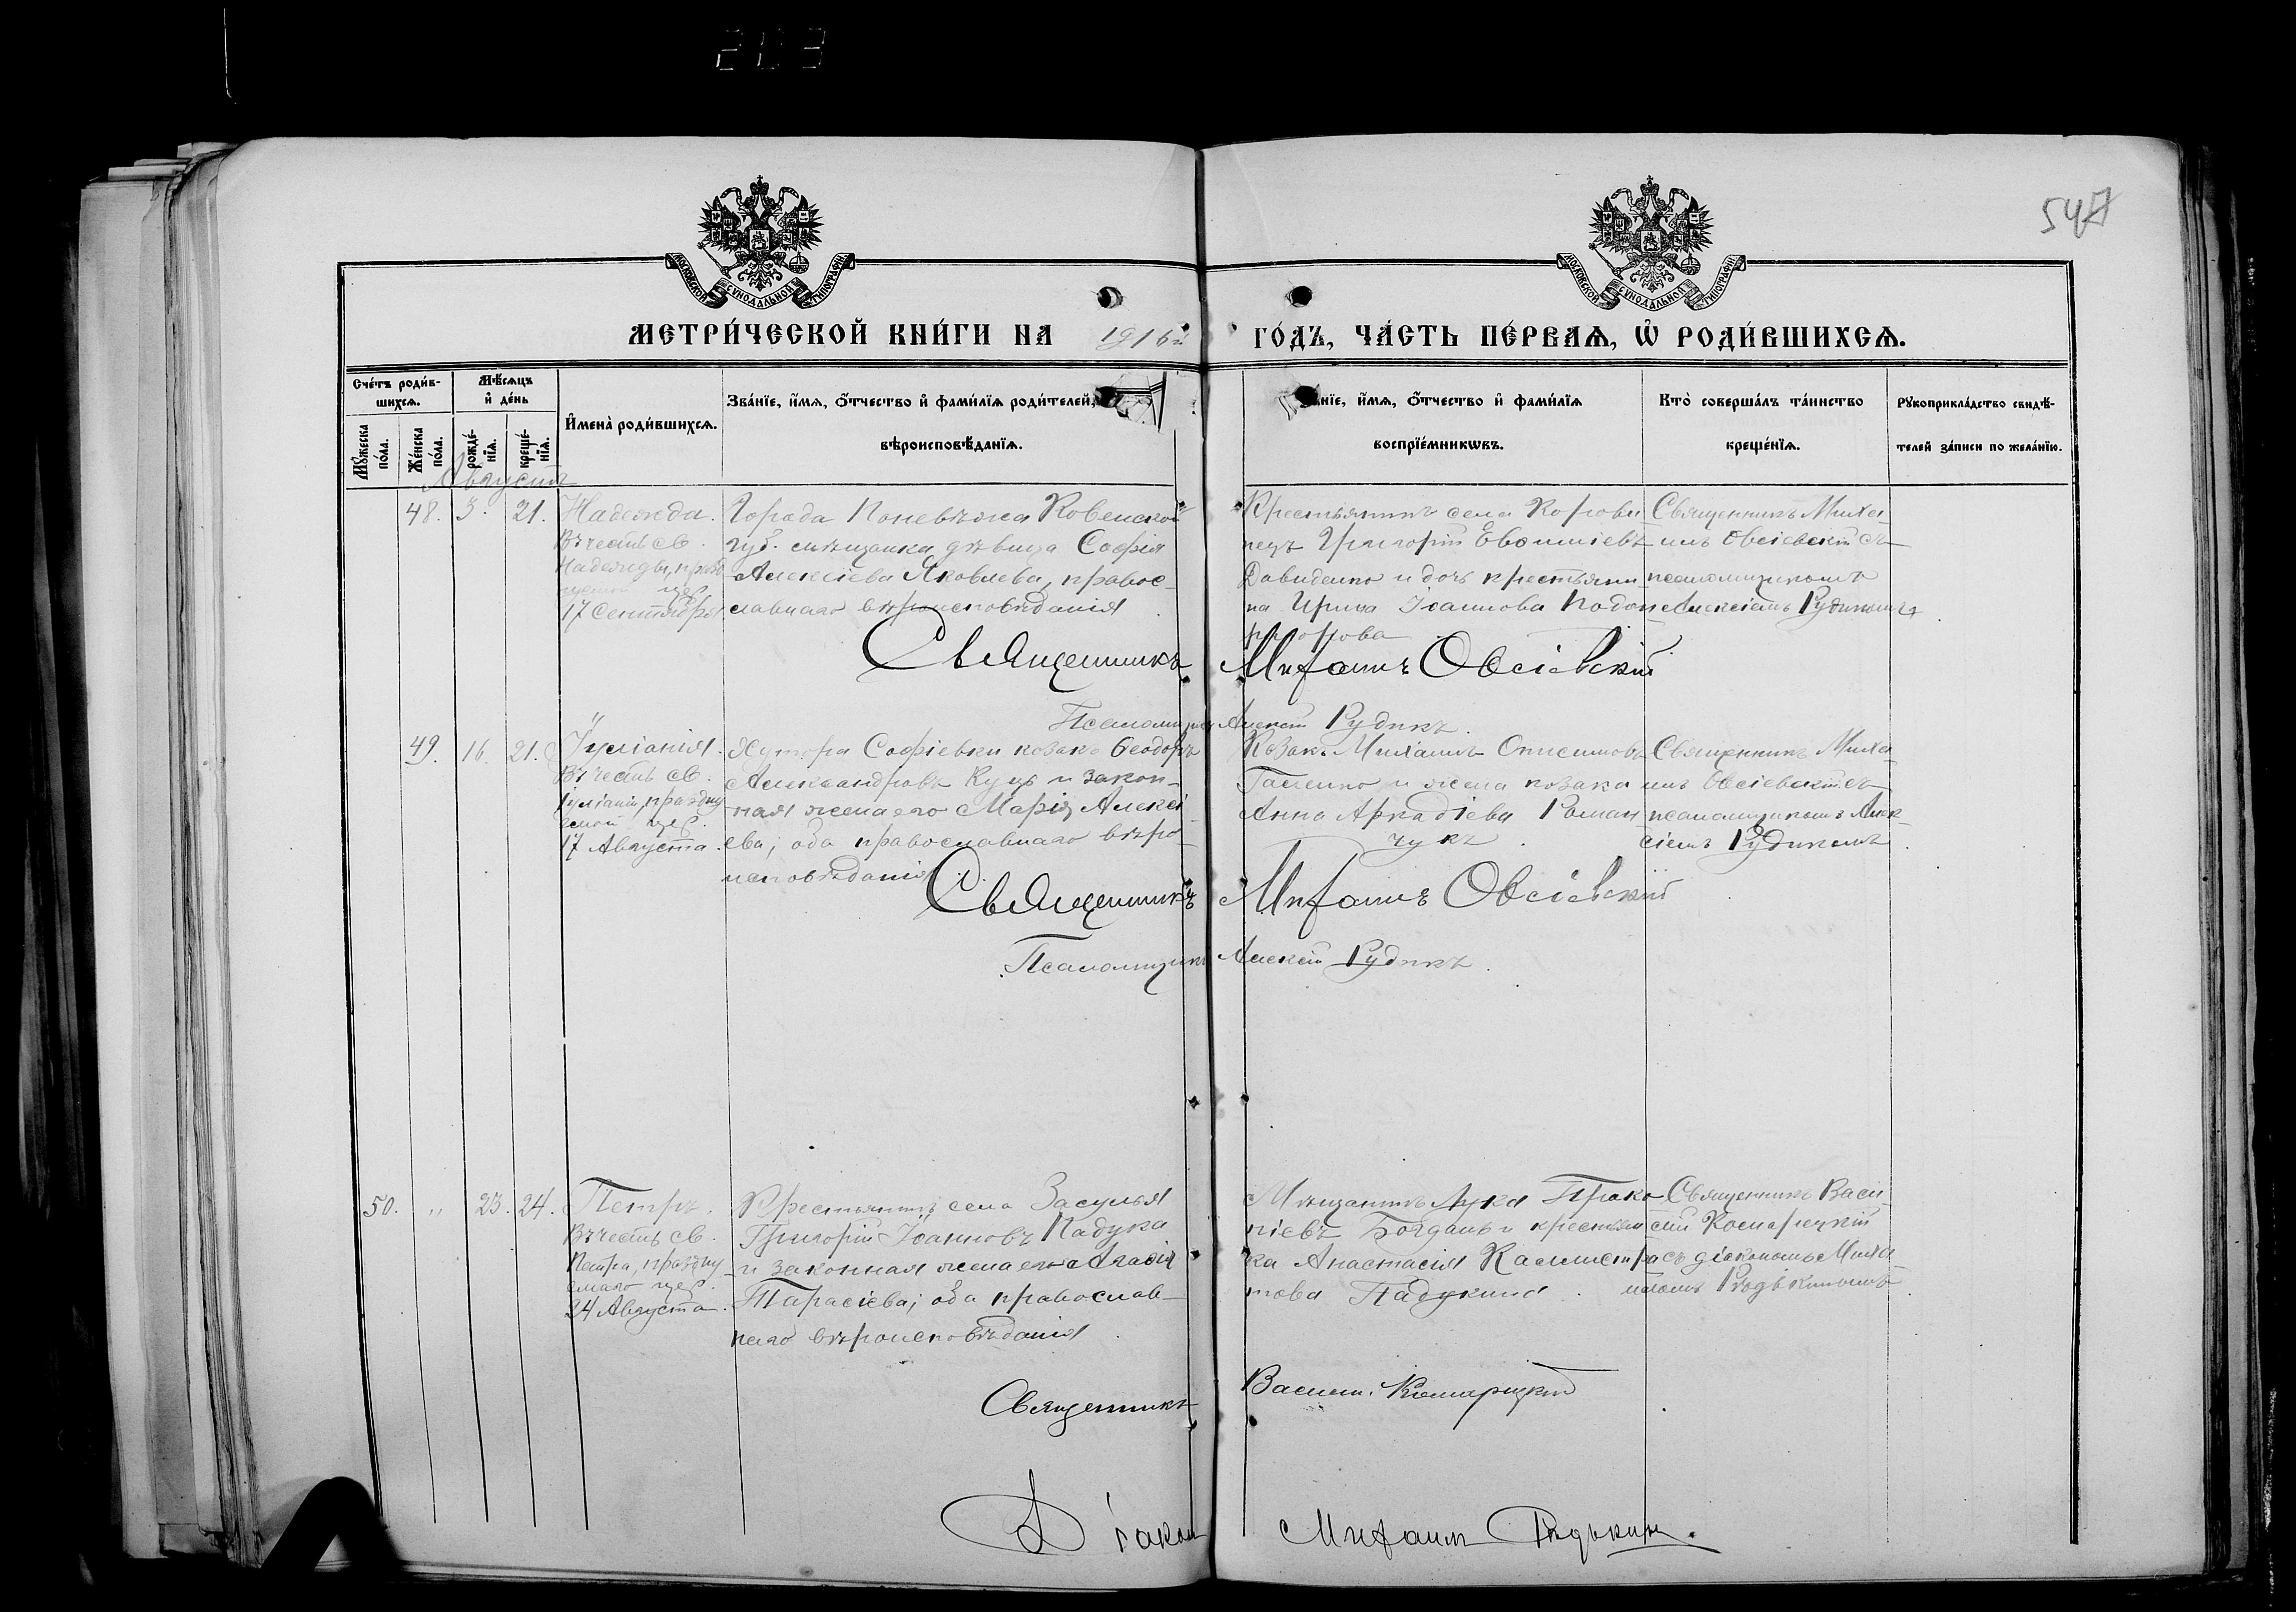 203
547
МОСКОВСКОЙ СѴНОДАЛЬНОЙ ТИПОГРАФІИ
МОСКОВСКОЙ СѴНОДАЛЬНОЙ ТИПОГРАФІИ
МЕТРИ́ЧЕСКОЙ КНИ́ГИ НА 1916 г. ГО́ДЪ, ЧА́СТЬ ПЕ́РВАЯ, Ѡ РОДИ́ВШИХСЯ.
Сче́тъ роди́в-
шихся.
Мѣ́сяцъ
и де́нь
Мꙋ́жеска
по́ла.
Же́нска
по́ла.
рожде́-
нїя.
креще́-
нїя.
И҆мена̀ роди́вшихся.
Зва́нїе, и҆́мя, ѻ҆́тчество и҆ фами́лїя роди́телей,
вѣроисповѣ́данїя.
нїе, и҆́мя, ѻ҆́тчество и҆ фами́лїя
воспрїе́мникѡвъ.
Кто̀ соверша́лъ та́инство
креще́нїя.
Рꙋкоприкла́дство свидѣ́-
телей за́писи по жела́нїю.
Августъ
48. 3. 21. Надежда.
Въ честь св.
Надежды, празд
17 Сентября
Города Поневѣжа Ковенской
губ. мѣщанка дѣвица Софія
Алексіева Яковлева, правос-
славнаго вѣроисповѣданія
Крестьянинъ села
Григорій Евфиміевъ
Давиденко и дочь крестьяни
на Ирина Іоаннова
Священникъ Миха
илъ Овсіевскій съ
псаломщикомъ
Алексіемъ Рудикомъ
Священникъ Михаилъ Овсіевскій
Псаломщикъ Алексій Рудикъ
49. 16. 21. Іуліанія.
Въ честь св.
Іуліаніи, праздну
емой цер.
17 Августа
Хутора Софіевки козакъ Ѳеодоръ
Александровъ Куцъ и закон-
ная жена его Марія Алексі
ева; оба православнаго вѣро
исповѣданія
Козакъ Михаилъ Онисимовъ
и жена козака
Анна Аркадіева Роман-
чукъ
Священникъ Миха
илъ Овсіевскій съ
псаломщикомъ Алек-
сіемъ Рудикомъ
Священникъ Михаилъ Овсіевскій
Псаломщикъ Алексій Рудикъ
50. " 23. 24. Петръ.
Въ честь св.
Петра, праздну
емаго цер.
24 Августа.
Крестьянинъ села Засулья
Григорій Іоанновъ Падука
и законная жена его Агафія
Тарасіева; оба православ-
наго вѣроисповѣданія
Мѣщанинъ Лука Проко
піевъ Богданъ и крестьян
ка Анастасія Каллистра
това Падукина
Священникъ Васи
лій Комарецкій
съ діакономъ Миха
иломъ Рѣдькинымъ
Священникъ Василій Комарецкій
Діаконъ Михаилъ Рѣдькинъ.